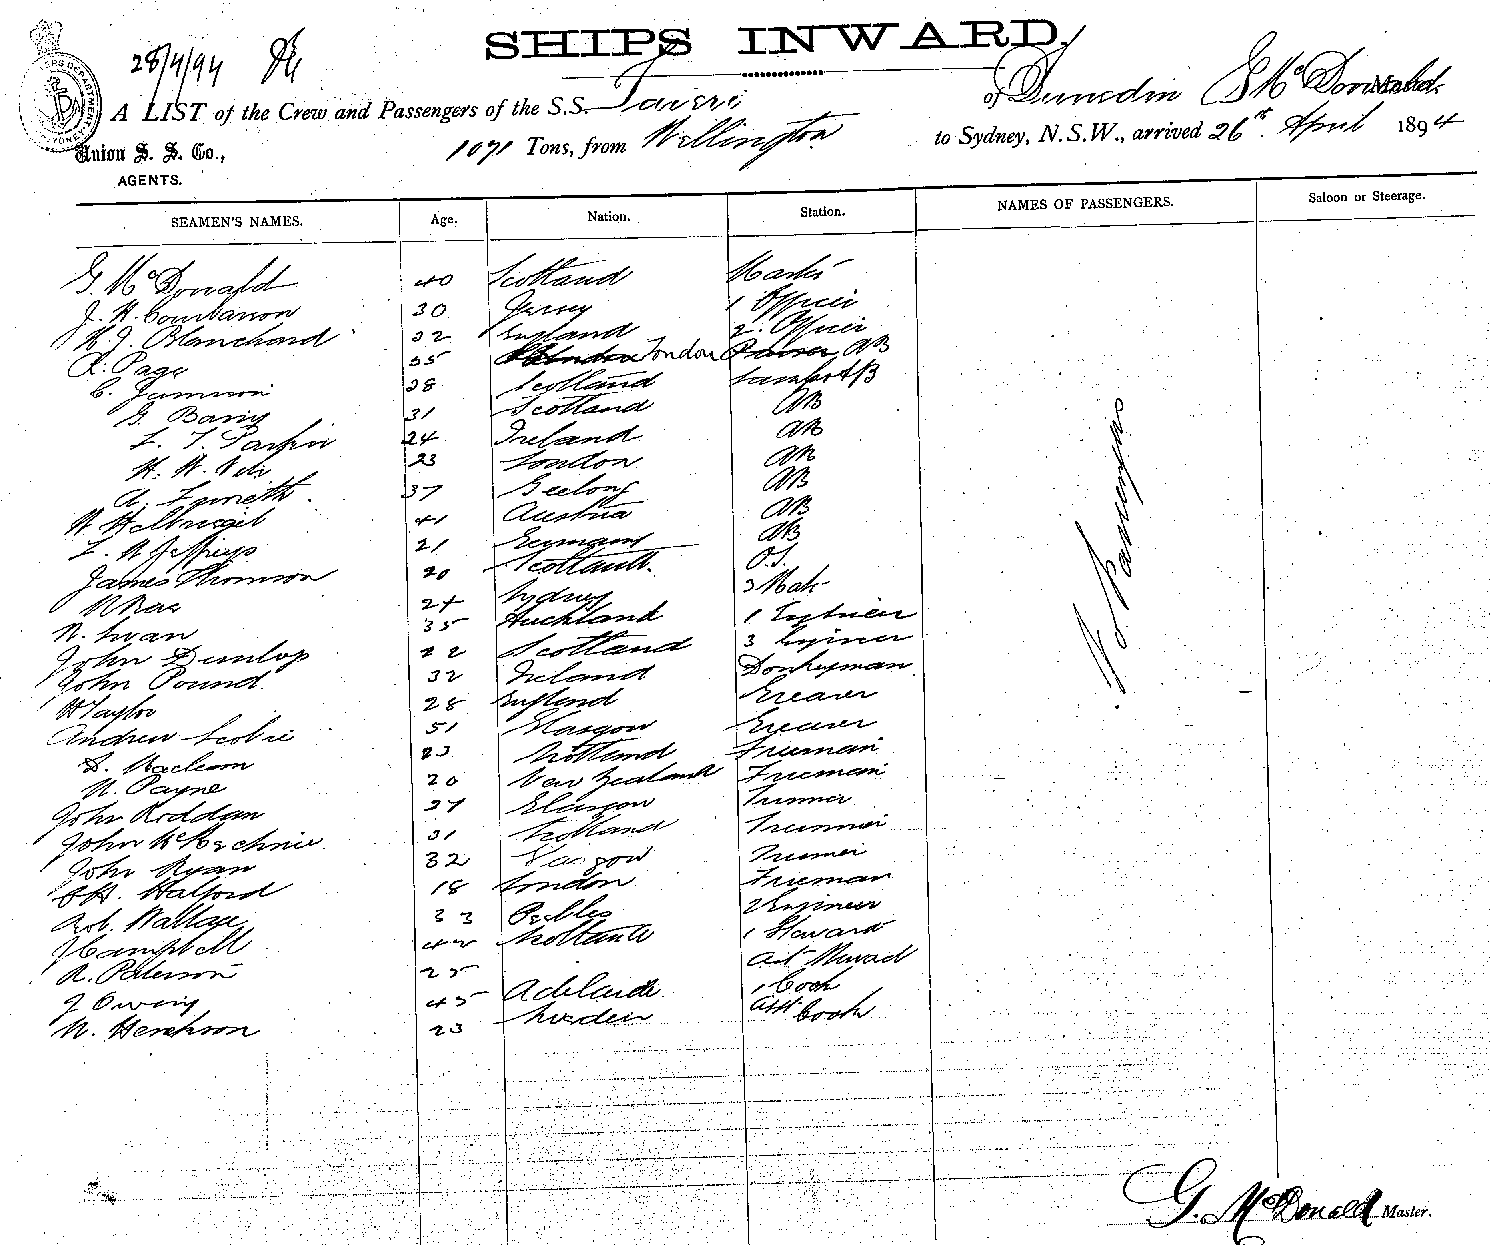 SHIPS INWARD.
28/4/94
A LIST of the Crew and Passengers of the S.S. Taieri of Dunedin G McDonald Master.
Union S. S. Co.,
AGENTS.
1071 Tons, from Wellington to Sydney, N.S.W., arrived 26th April 1894
SEAMEN'S NAMES. Age. Nation. Station. NAMES OF PASSENGERS. Saloon or Steerage.
G. McDonald 40 Scotland Master
J. H. 30 Jersey 1 Officer
H. J. Blanchard 32 England 2. Officer
A. Page 35 London AB
C. Jamison 28 Scotland Lamps AB
G. 31 Scotland AB
L. T. 24 Ireland AB
H. W. 23 London AB
A. 37 Geelong AB
41 Austria AB
L. Jeffreys 21 Germany AB
James Thomson 20 Scotland O.S.
Rae 24 Sydney 3 Mate
35 Auckland 1 Engineer
John Dunlop 22 Scotland 3 Engineer
John Pound 32 Ireland Donkeyman
H Taylor 28 England Greaser
Andrew Scobie 51 Glasgow Greaser
D. 23 Scotland Fireman
Payne 20 New Zealand Fireman
John Roddan 27 Glasgow Trimmer
John McKechnie 31 Scotland Trimmer
John Ryan 32 Glasgow Trimmer
Halford 18 London Fireman
Rob. Wallace 33 Peebles 2 Engineer
J Campbell 42 Scotland 1 Steward
R. Paterson 25 Ast Steward
J Owing 45 Adelaide 1 Cook
23 Sweden Asst Cook
No Passengers
G. McDonald Master.